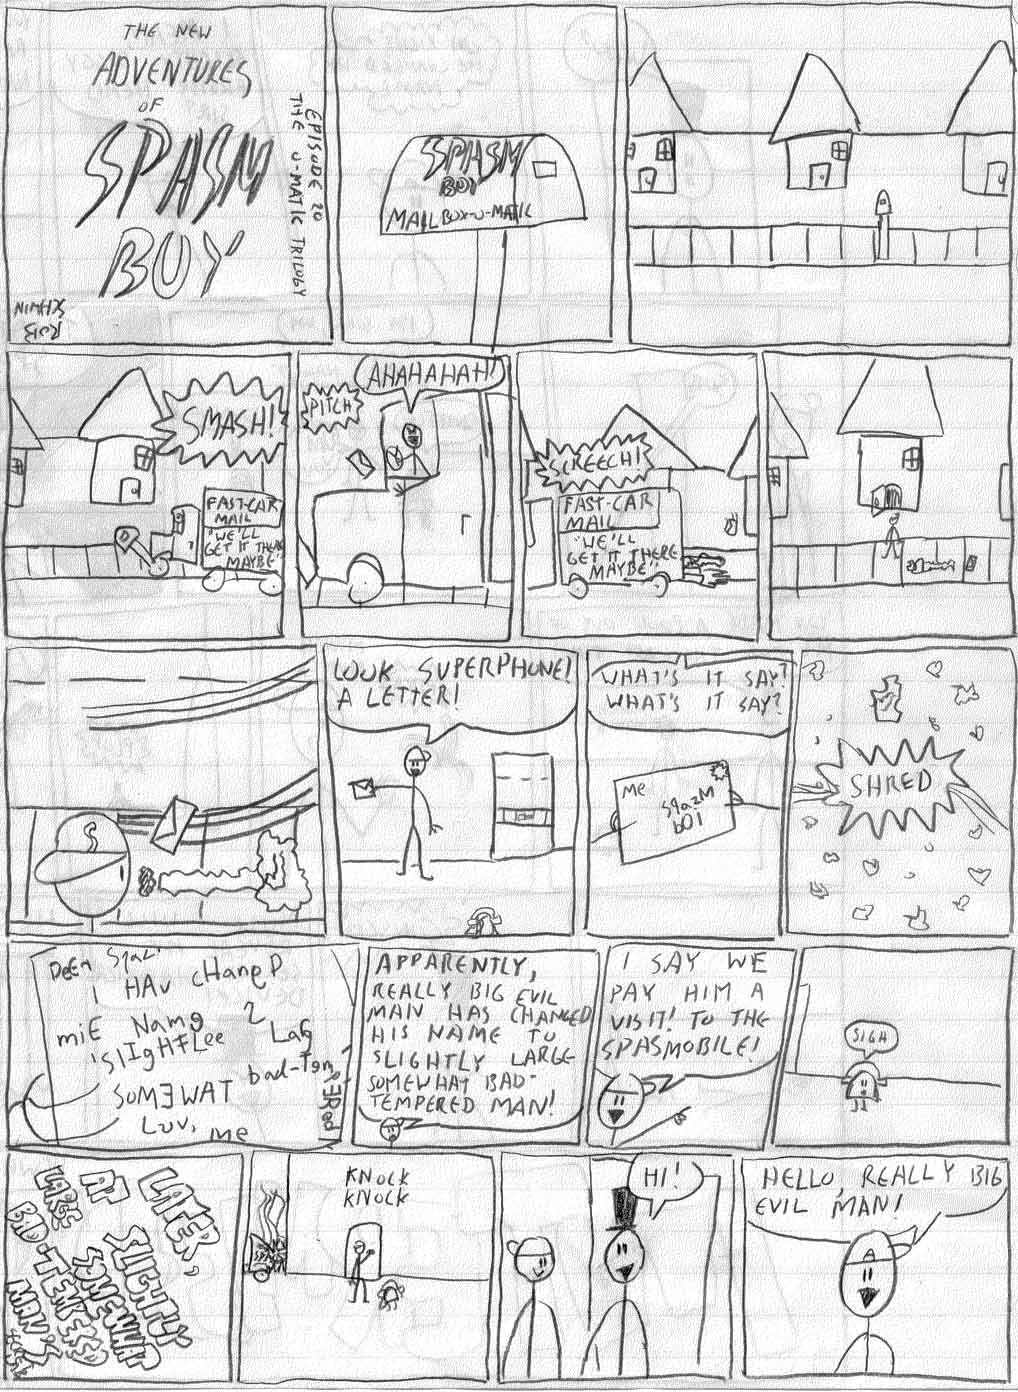 THE NEW
ADVENTURES
OF
SPASM
BOY
EPISODE 20
THE U-MATIC TRILOGY
SPASM
BOY
MAILBOX-U-MATIC
SMASH!
FAST-CAR
MAIL
"WE'LL
GET IT THERE
MAYBE"
PITCH
AHAHAHAH!
SCREECH!
FAST-CAR
MAIL
"WE'LL
GET IT THERE
MAYBE"
LOOK SUPERPHONE!
A LETTER!
WHAT'S IT SAY?
WHAT'S IT SAY?
Me
SqazM
bOI
SHRED
DeeR Spaz
i HAv cHangeD
miE Namg 2
'SlIgHtLee LaG
SOMƎWAT bad-TemPERed
Luv, me
APPARENTLY,
REALLY BIG EVIL
MAN HAS CHANGED
HIS NAME TO
SLIGHTLY LARGE
SOMEWHAT BAD-
TEMPERED MAN!
I SAY WE
PAY HIM A
VISIT! TO THE
SPASMOBILE!
SIGH
LATER,
AT SLIGHTLY
LARGE SOMEWHAT
BAD-TEMPERED
MAN'S
KNOCK
KNOCK
HI!
HELLO, REALLY BIG
EVIL MAN!
A